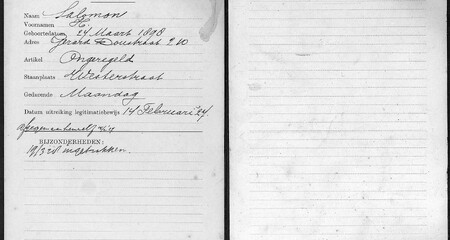 Naam: Salomon
Voornamen H.
Geboortedatum 24 Maart 1898
Adres Gerard Doustraat 210
Artikel Ongeregeld
Staanplaats Waterstraat
Gedurende Maandag
Datum uitreiking legitimatiebewijs 14 Februari
BIJZONDERHEDEN:
ingetrokken.